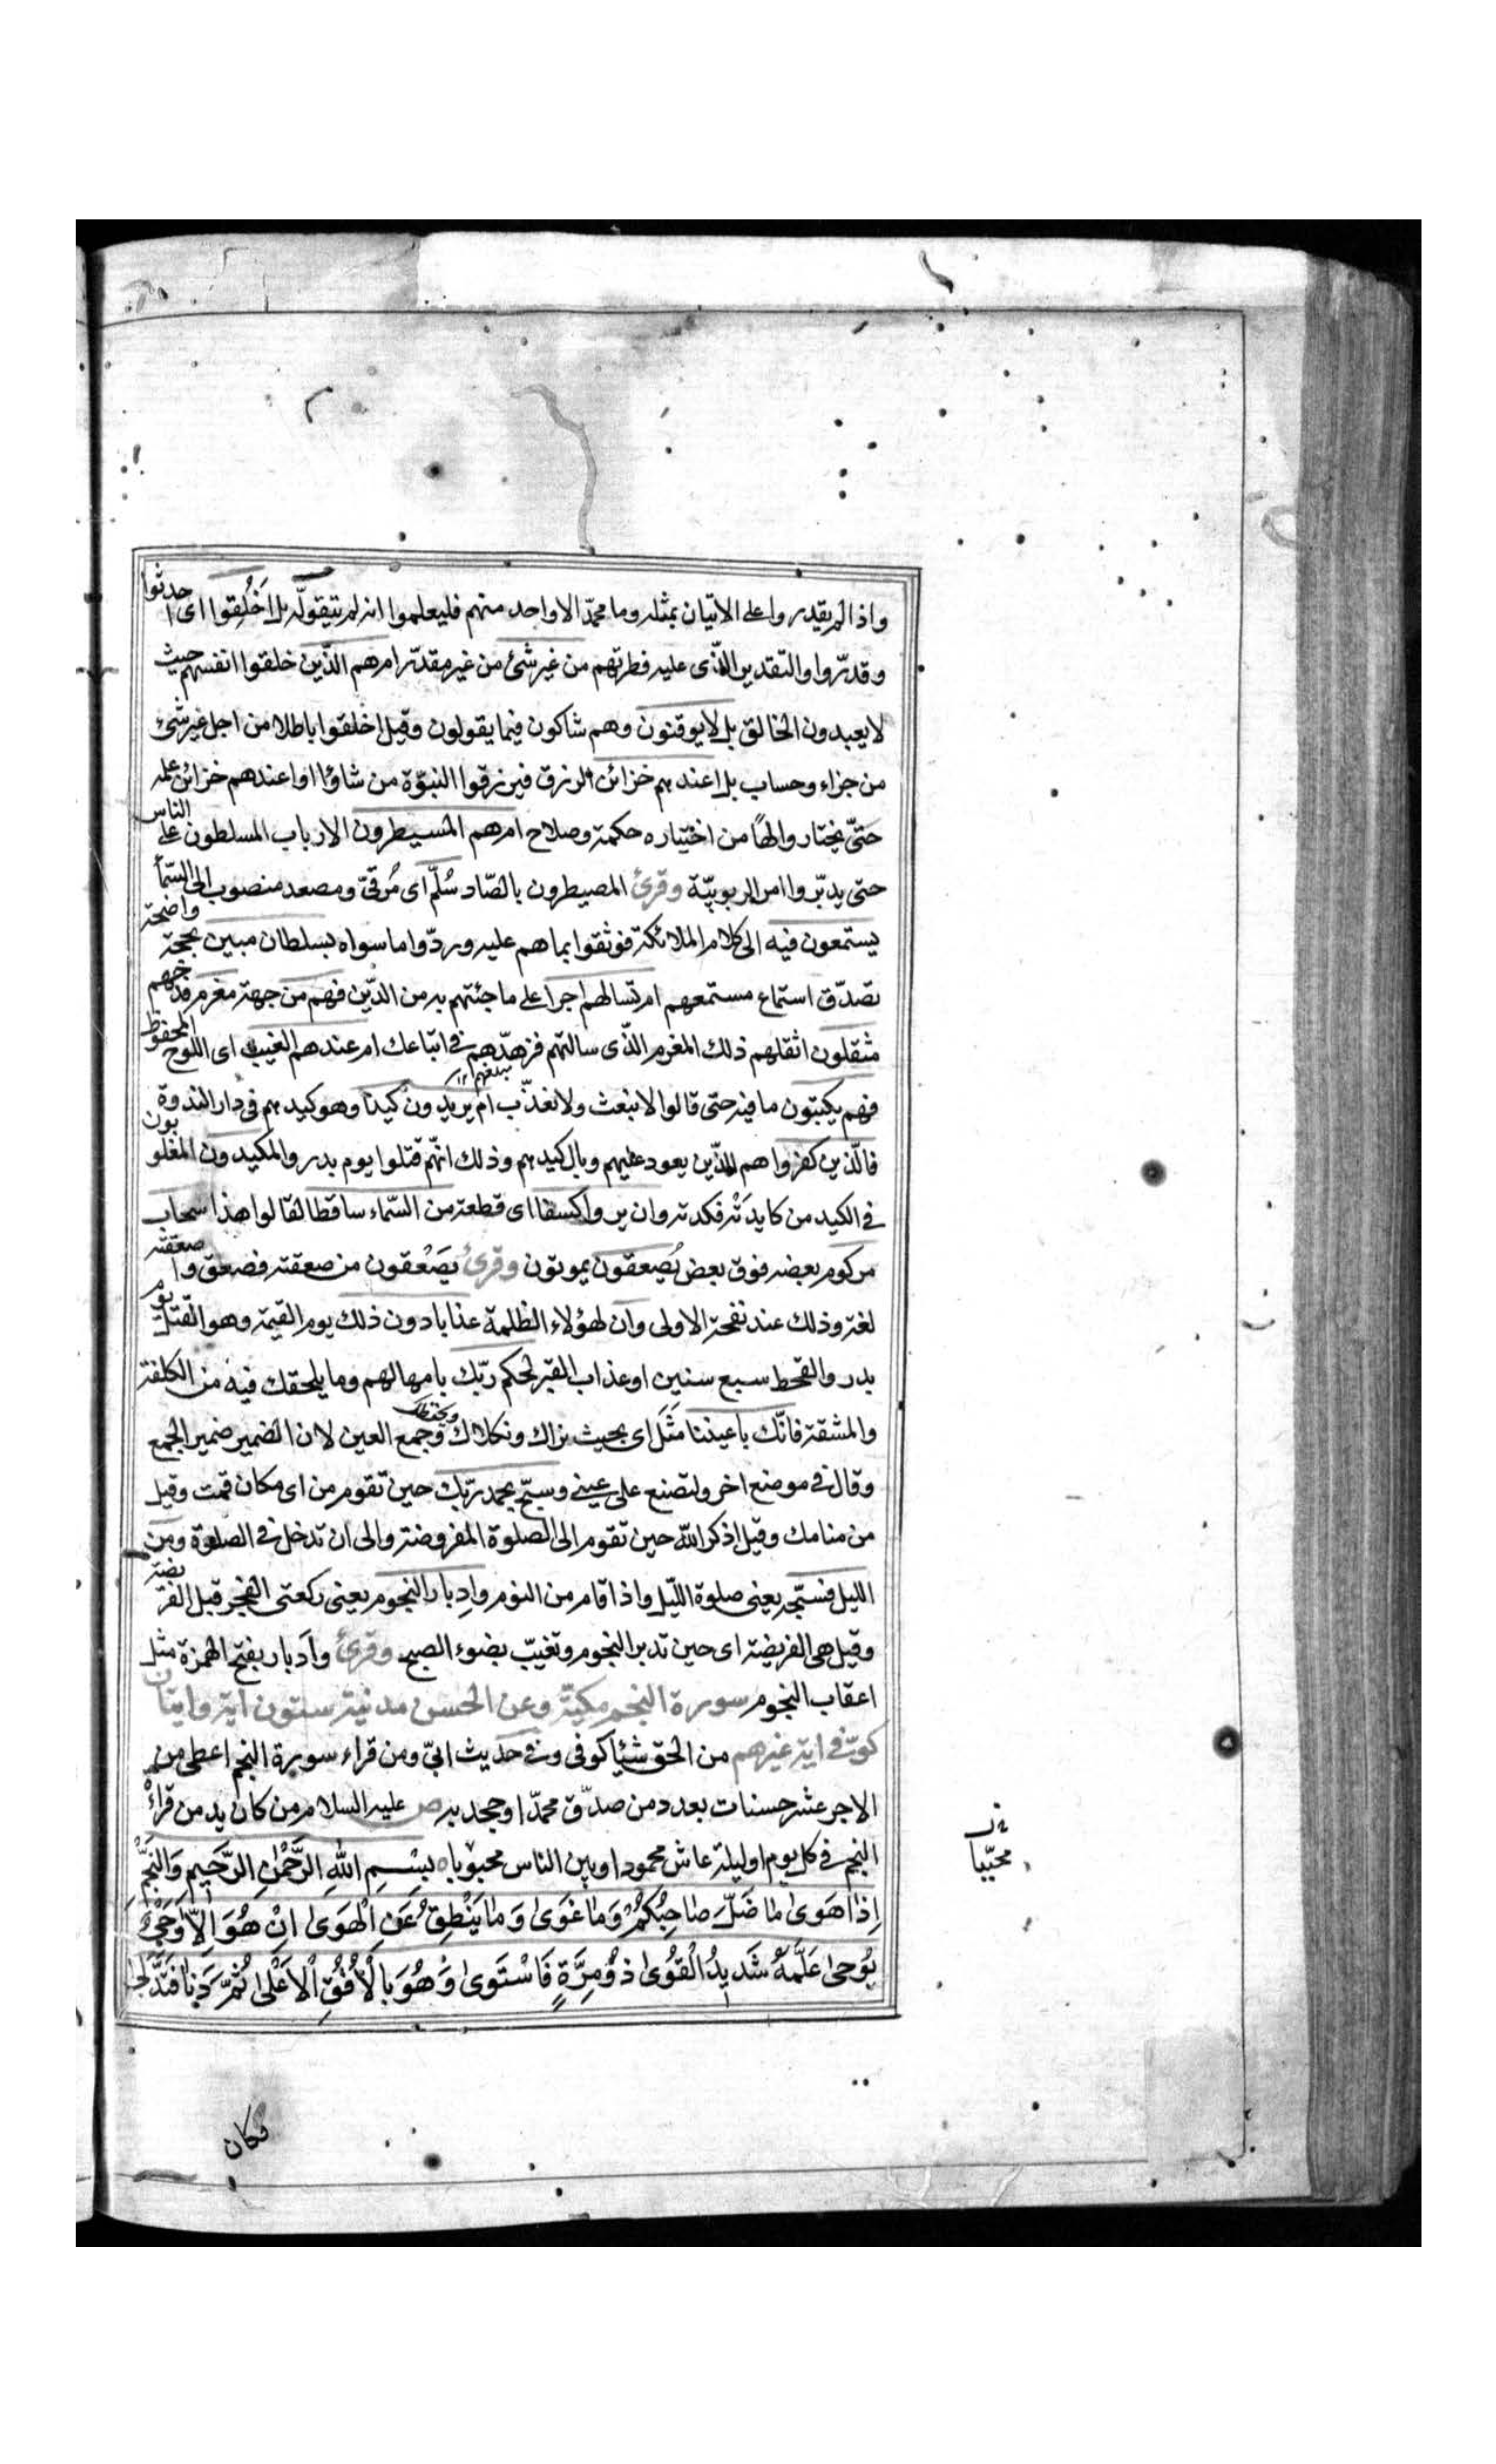 واذا لم يقدروا على الاتيان بمثله وما محمّد الا واحد منهم فليعلموا انه لم يتقوّله بل اَخُلِقوا اى احدثوا
وقدّروا والتقدير الّذى عليه فطرتهم من غير شئ من غير مقدّر ام هم الذّين خلقوا انفسهم حيث
لا يعبدون الخالق بل لا يوقنون وهم شاكون فيما يقولون وقيل اخلقوا باطلا من اجل غير شئ
من جزاء وحساب بل اعندهم خزائن الرزق فيرزقوا النبوّة من شاؤا او اعندهم خزائن علمه
حتّى يختاروا لها من اختياره حكمة وصلاح ام هم المسيطرون الارباب المسلطون على الناس
حتى يدبّروا امر الربوبيّة وقرئ المصيطرون بالصّاد سُلّم اى مُرقىّ ومصعد منصوب الى السّمآ
يستمعون فيه الى كلام الملائكة فوثقوا بما هم عليه وردّوا ما سواه بسلطان مبين بحجة واضحة
تصدّق استماع مستمعهم ام تسالهم اجرا على ما جئتهم به من الدّين فهم من جهة مغرم فدحهم
مثقلون اثقلهم ذلك المغرم الذّى سالتهم فزهّدهم فى اتباعك ام عندهم الغيب اى اللوح المحفوظ
فهم يكتبون ما فيه حتى قالوا لا نبعث ولا نعذّب ام يريدون كيدًا وهو كيدهم فى دار الندوة
فالّذين كفروا هم الذّين يعود عليهم وبال كيدهم وذلك انّهم قتلوا يوم بدر والمكيدون المغلوبون
فى الكيد من كايدتْه فكدته وان يروا كسفا اى قطعة من السّماء ساقطا لقالوا هذا سحاب
مركوم بعضه فوق بعض يُصعقون يموتون وقرئ يَصَعْقون من صعقته فصعق واصعقته
لغة وذلك عند نفحة الاولى وان لهؤلاء الظلمة عذابا دون ذلك يوم القيمة وهو القتل يوم
بدر والقحط سبع سنين او عذاب القبر لحكم ربّك بامهالهم وما يلحقك فيه من الكلفة
والمشقة فانّك باعيننا مَثَل اى بحيث نراك ونكلاك وجمع العين لان الضمير ضمير الجمع
وقال فى موضع اخر ولتصنع على عينى وسبّح بحمد ربّك حين تقوم من اى مكان قمت وقيل
من منامك وقيل اذكر الله حين تقوم الى الصلوة المفروضة والى ان تدخل فى الصلوة ومن
الليل فسبّحه يعنى صلوة اللّيل واذا قام من النوم وادبار النجوم يعنى ركعتى الفجر قبل الفريضة
وقيل هى الفريضة اى حين تدبر النجوم وتغيّب بضوء الصبح وقرئ وادبار بفتح الهمزة مثل
اعقاب النجوم سورة النجم مكيّة وعن الحسن مدنية ستون اية وايتان
كوفى اية غيرهم من الحق شيئا كوفى وفى حديث ابىّ ومن قراء سورة النجم اعطى من
الاجر عشر حسنات بعدد من صدّق محمّدا وجحد به ص عليه السلام من كان يدمن قراءة
النجم فى كل يوم او ليلة عاش محمودا وبين الناس محبوبا بِسْمِ اللهِ الرَّحْمٰنِ الرَّحِيمِ وَالنَّجْمِ
اِذَا هَوَى مَا ضَلَّ صَاحِبُكُمْ وَمَا غَوَى وَمَا يَنْطِقُ عَنِ الْهَوَى اِنْ هُوَ اِلَّا وَحْىٌ
يُوحَى عَلَّمَهُ شَدِيدُ الْقُوَى ذُو مِرَّةٍ فَاسْتَوَى وَهُوَ بِالْاُفُقِ الْاَعْلَى ثُمَّ دَنَا فَتَدَلَّى
محبّبا
فكان